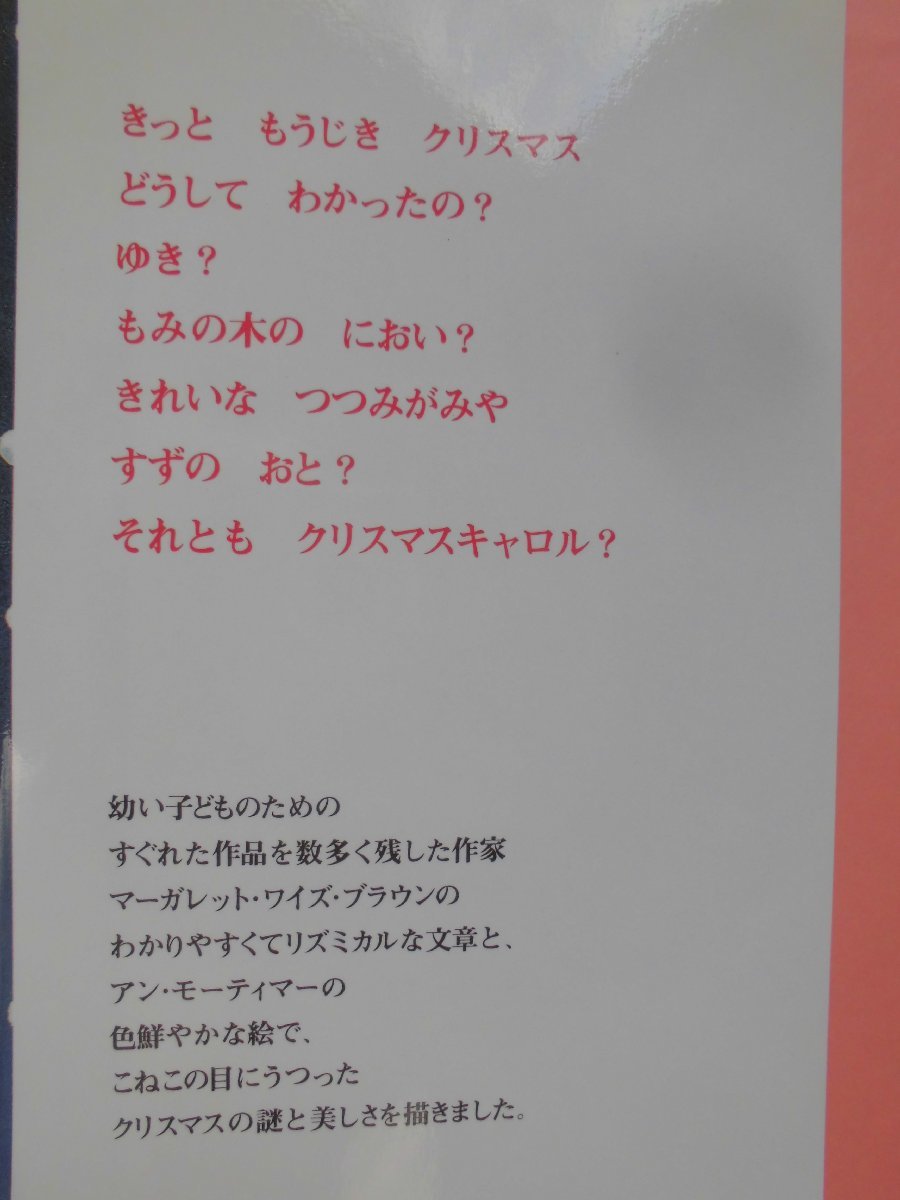 きっと　もうじき　クリスマス
どうして　わかったの？
ゆき？
もみの木の　におい？
きれいな　つつみがみや
すずの　おと？
それとも　クリスマスキャロル？
幼い子どものための
すぐれた作品を数多く残した作家
マーガレット・ワイズ・ブラウンの
わかりやすくてリズミカルな文章と、
アン・モーティマーの
色鮮やかな絵で、
こねこの目にうつった
クリスマスの謎と美しさを描きました。